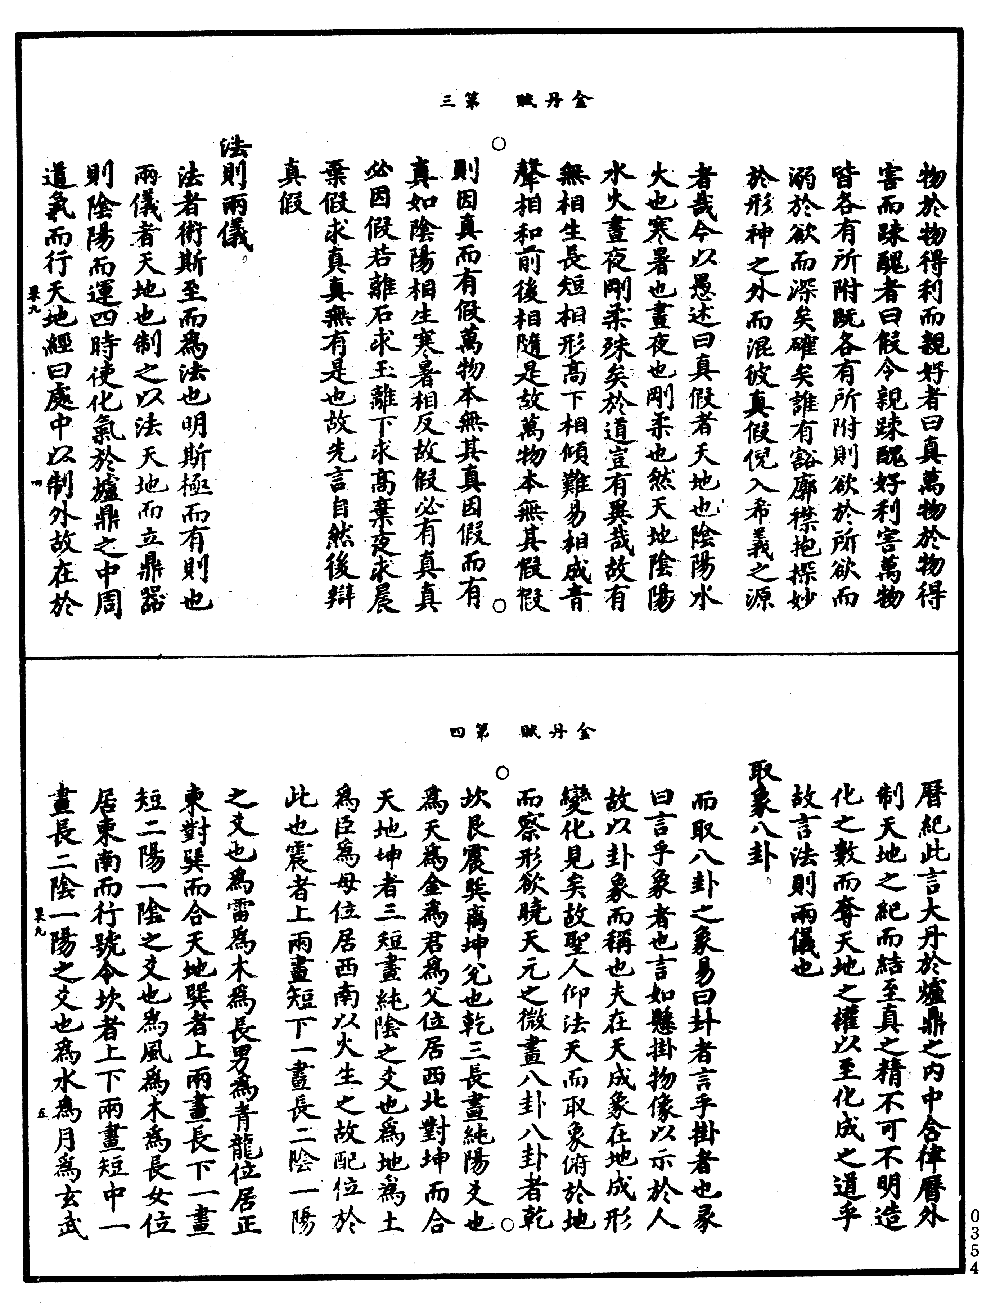 金丹賦　第三
物於物得利而親好者曰真萬物於物得
害而踈醜者曰假今親踈醜好利害萬物
皆各有所附既各有所附則欲於所欲而
溺於欲而深矣確矣誰有豁廓襟抱探妙
於形神之外而混彼真假倪入希義之源
者哉今以愚述曰真假者天地也陰陽水
火也寒暑也晝夜也剛柔也然天地陰陽
水火晝夜剛柔殊矣於道豈有異哉故有
無相生長短相形高下相傾難易相成音
聲相和前後相隨是故萬物本無其假假
則因真而有假萬物本無其真因假而有
真如陰陽相生寒暑相反故假必有真真
必因假若離石求玉離下求高棄夜求晨
棄假求真真無有是也故先言自然後辯
真假
法則兩儀
法者術斯至而為法也明斯極而有則也
兩儀者天地也制之以法天地而立鼎器
則陰陽而運四時使化氣於爐鼎之中周
道氣而行天地經曰處中以制外故在於
果九
四
金丹賦　第四
曆紀此言大丹於爐鼎之内中合律曆外
制天地之紀而結至真之精不可不明造
化之數而奪天地之權以至化成之道乎
故言法則兩儀也
取象八卦
而取八卦之象易曰卦者言乎掛者也彖
曰言乎象者也言如懸掛物像以示於人
故以卦象而稱也夫在天成象在地成形
變化見矣故聖人仰法天而取象俯於地
而察形欲曉天元之微畫八卦八卦者乾
坎艮震巽离坤兌也乾三長畫純陽爻也
為天為金為君為父位居西北對坤而合
天地坤者三短畫純陰之爻也為地為土
為臣為母位居西南以火生之故配位於
此也震者上兩畫短下一畫長二陰一陽
之爻也為雷為木為長男為青龍位居正
東對巽而合天地巽者上兩畫長下一畫
短二陽一陰之爻也為風為木為長女位
居東南而行號令坎者上下兩畫短中一
畫長二陰一陽之爻也為水為月為玄武
果九
五
0354